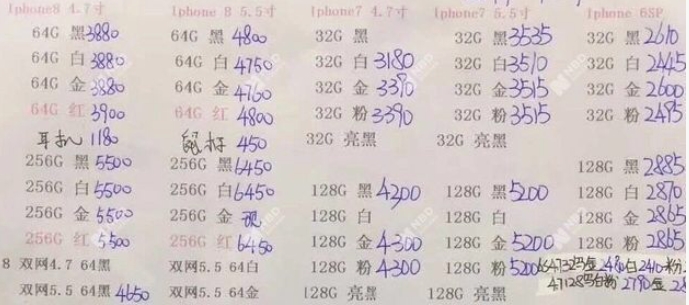 Iphone8 4.7寸 Iphone 8 5.5寸 Iphone7 4.7寸 Iphone7 5.5寸 Iphone 6SP
64G 黑 3880 64G 黑 4800 32G 黑 32G 黑 3535 32G 黑 2610
64G 白 3880 64G 白 4750 32G 白 3180 32G 白 3510 32G 白 2445
64G 金 3880 64G 金 4760 32G 金 3390 32G 金 3515 32G 金 2600
64G 红 3900 64G 红 4800 32G 粉 3390 32G 粉 3515 32G 粉 2495
耳机 1180 鼠标 450 32G 亮黑 32G 亮黑
256G 黑 5500 256G 黑 6450 128G 黑 2885
256G 白 5500 256G 白 6450 128G 黑 4200 128G 黑 5200 128G 白 2870
256G 金 5500 256G 金 128G 白 128G 白 128G 金 2865
256G 红 5500 256G 红 6450 128G 金 4300 128G 金 5200 128G 粉 2865
8 双网4.7 64黑 双网5.5 64白 128G 粉 4300 128G 粉 5200 金 2480 白 2410 粉
双网5.5 64黑 4650 双网5.5 64金 128G 亮黑 128G 亮黑 2790 金
NBD